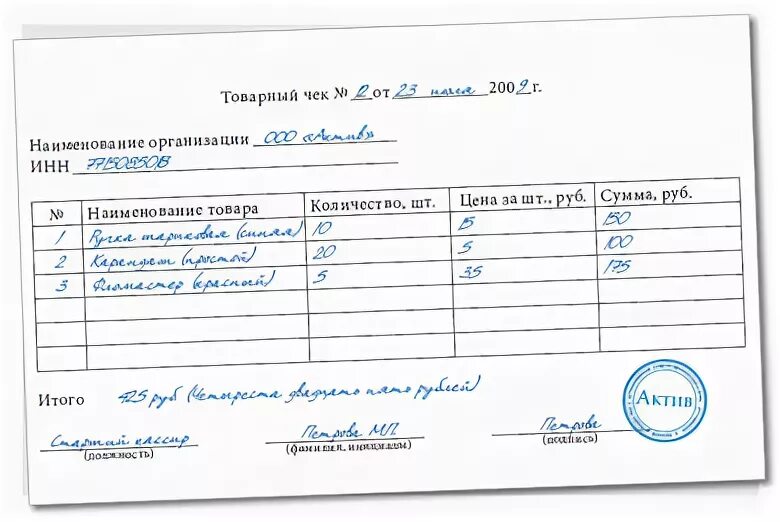 Товарный чек № 2 от 23 июня 2009 г.
Наименование организации ООО «Актив»
ИНН
№ Наименование товара Количество, шт. Цена за шт., руб. Сумма, руб.
1 Ручка шариковая (синяя) 10 15 150
2 Карандаш (простой) 20 5 100
3 Фломастер (красный) 5 35 175
Итого 425 руб (Четыреста двадцать пять рублей)
Старший кассир Петрова М.П. Петрова
(должность) (фамилия, инициалы) (подпись)
Актив